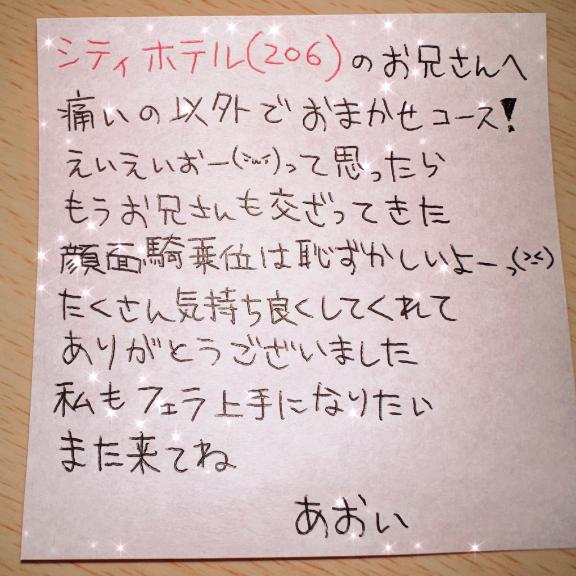 シティホテル(206)のお兄さんへ
痛いの以外でおまかせコース!
えいえいおー(>ω<)って思ったら
もうお兄さんも交ざってきた
顔面騎乗位は恥ずかしいよーっ(><)
たくさん気持ち良くしてくれて
ありがとうございました
私もフェラ上手になりたい
また来てね
あおい